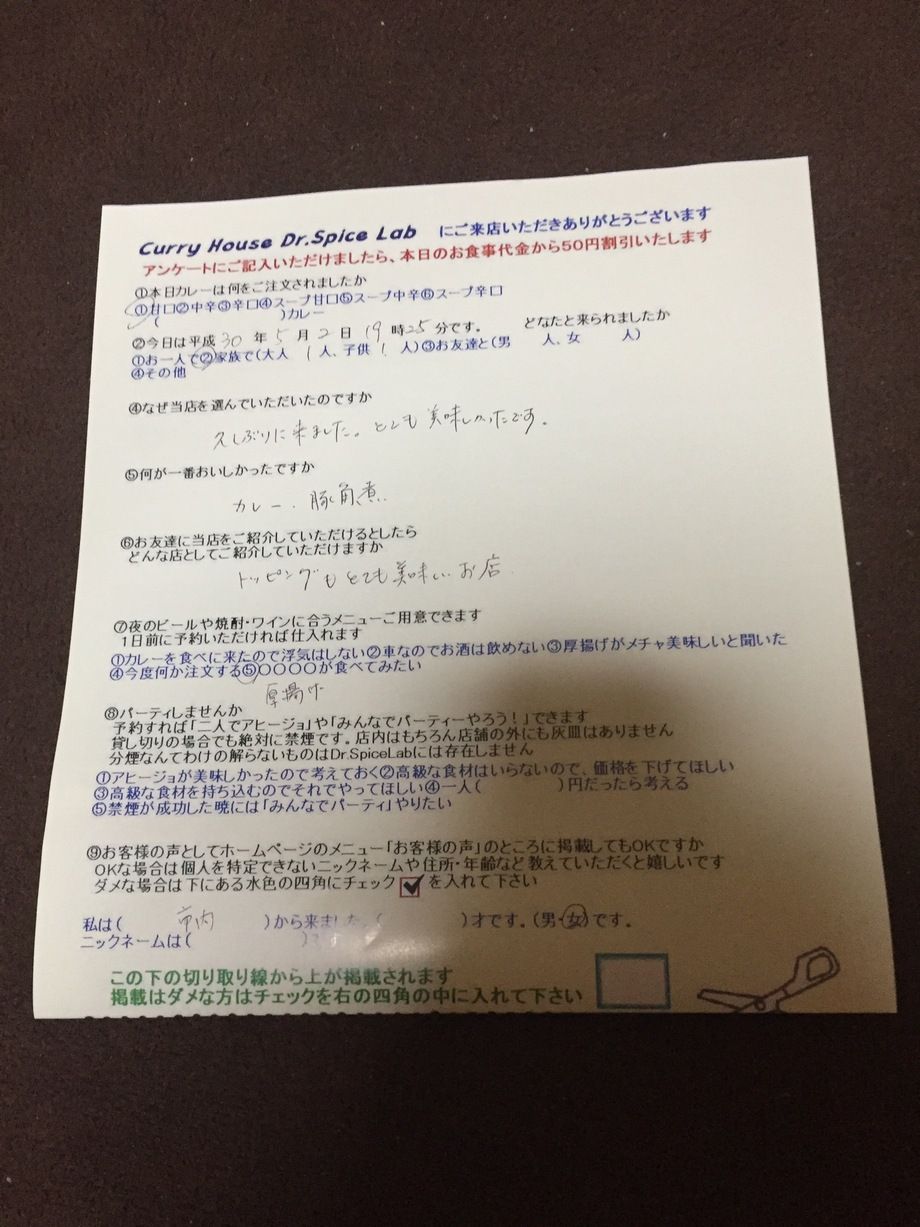 Curry House Dr.Spice Lab にご来店いただきありがとうございます
アンケートにご記入いただけましたら、本日のお食事代金から50円割引いたします
①本日カレーは何をご注文されましたか
①甘口②中辛③辛口④スープ甘口⑤スープ中辛⑥スープ辛口
( )カレー
②今日は平成 30 年 5 月 2 日 19 時 25 分です。 どなたと来られましたか
①お一人で②家族で(大人 1 人、子供 1 人)③お友達と(男 人、女 人)
④その他
④なぜ当店を選んでいただいたのですか
久しぶりに来ました。とても美味しかったです。
⑤何が一番おいしかったですか
カレー、豚角煮
⑥お友達に当店をご紹介していただけるとしたら
どんな店としてご紹介していただけますか
トッピングもとても美味しいお店
⑦夜のビールや焼酎・ワインに合うメニューご用意できます
1日前に予約いただければ仕入れます
①カレーを食べに来たので浮気はしない②車なのでお酒は飲めない③厚揚げがメチャ美味しいと聞いた
④今度何か注文する⑤〇〇〇〇が食べてみたい
厚揚げ
⑧パーティしませんか
予約すれば「二人でアヒージョ」や「みんなでパーティーやろう!」できます
貸し切りの場合でも絶対に禁煙です。店内はもちろん店舗の外にも灰皿はありません
分煙なんてわけの解らないものはDr.SpiceLabには存在しません
①アヒージョが美味しかったので考えておく②高級な食材はいらないので、価格を下げてほしい
③高級な食材を持ち込むのでそれでやってほしい④一人( )円だったら考える
⑤禁煙が成功した暁には「みんなでパーティ」やりたい
⑨お客様の声としてホームページのメニュー「お客様の声」のところに掲載してもOKですか
OKな場合は個人を特定できないニックネームや住所・年齢など教えていただくと嬉しいです
ダメな場合は下にある水色の四角にチェック を入れて下さい
私は( 市内 )から来ました。( )才です。(男・女)です。
ニックネームは( )
この下の切り取り線から上が掲載されます
掲載はダメな方はチェックを右の四角の中に入れて下さい